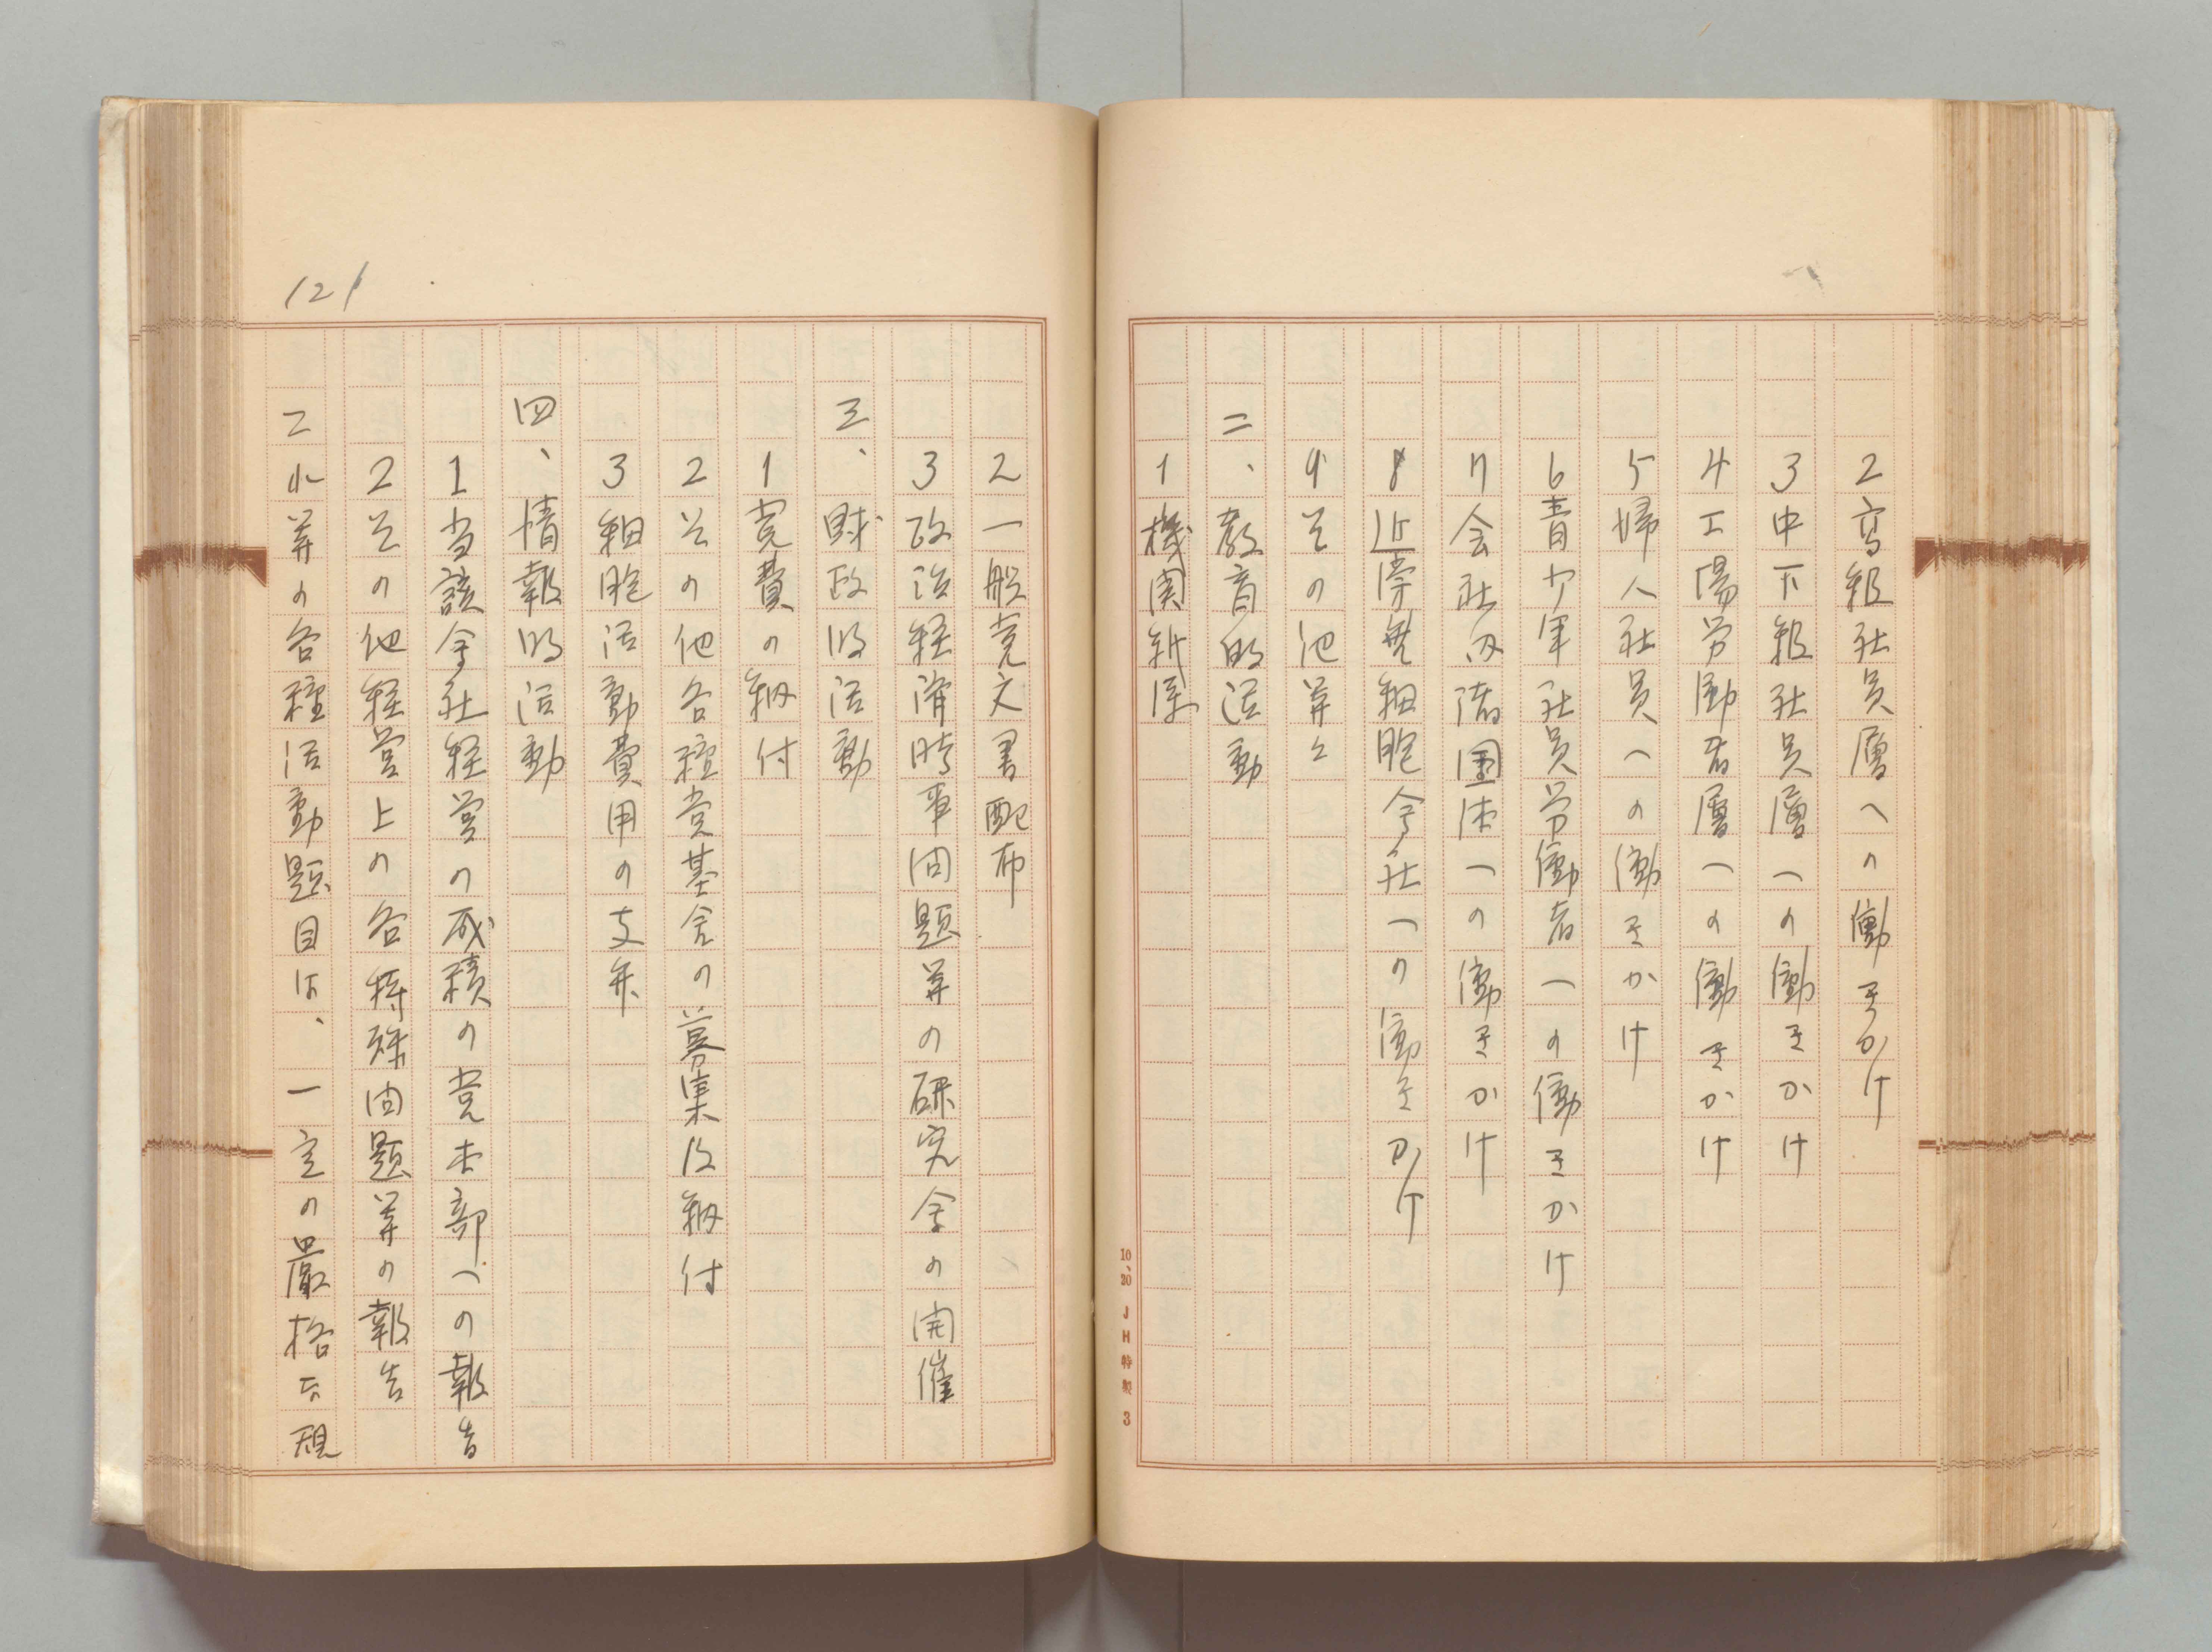 2高級社員層への働きかけ
3中下級社員層への働きかけ
4工場労働者層への働きかけ
5婦人社員への働きかけ
6青少年社員労働者への働きかけ
7会社内諸團体への働きかけ
8近傍無細胞会社への働きかけ
9その他等々
二、教育的活動
1機関紙係
10、20 JH特製 3
2一般党文書配布
3政治経済時事问題等の研究会の開催
三、財政的活動
1党費の納付
2その他各種党基金の募集及納付
3細胞活動費用の支弁
四、情報的活動
1当該会社経営の成積の党本部への報告
2その他経営上の各特殊问題等の報告
これ等の各種活動題目は、一定の嚴格な規
121